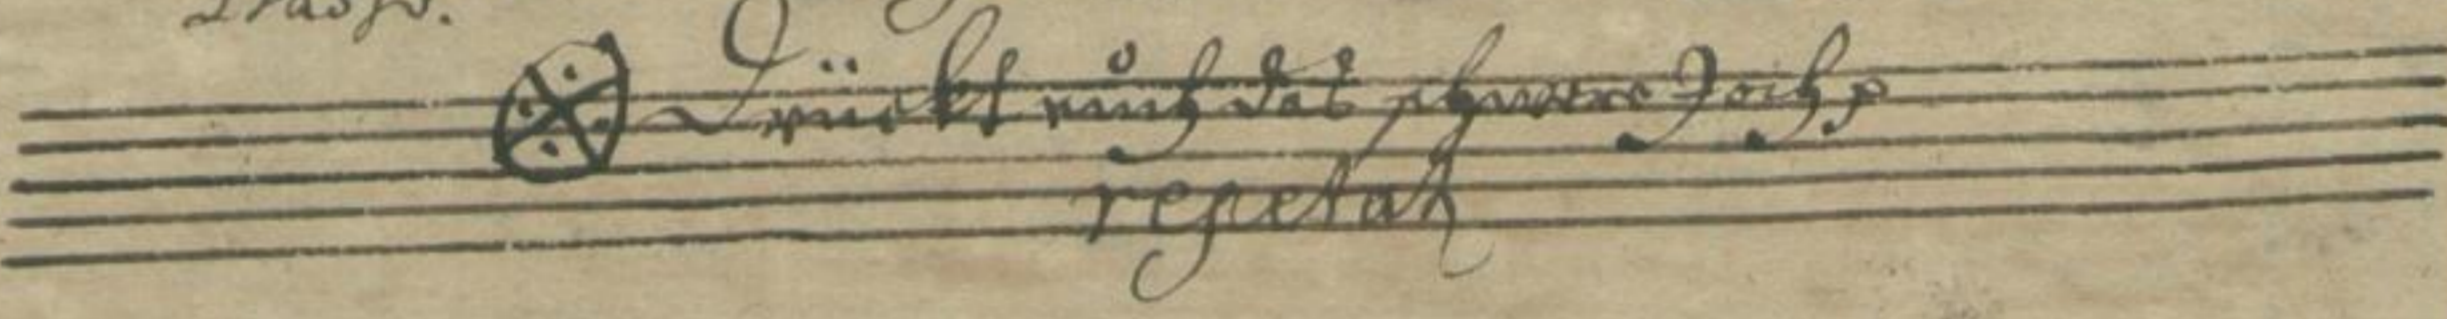 Drückt euch das schwere Joch p
repetatur